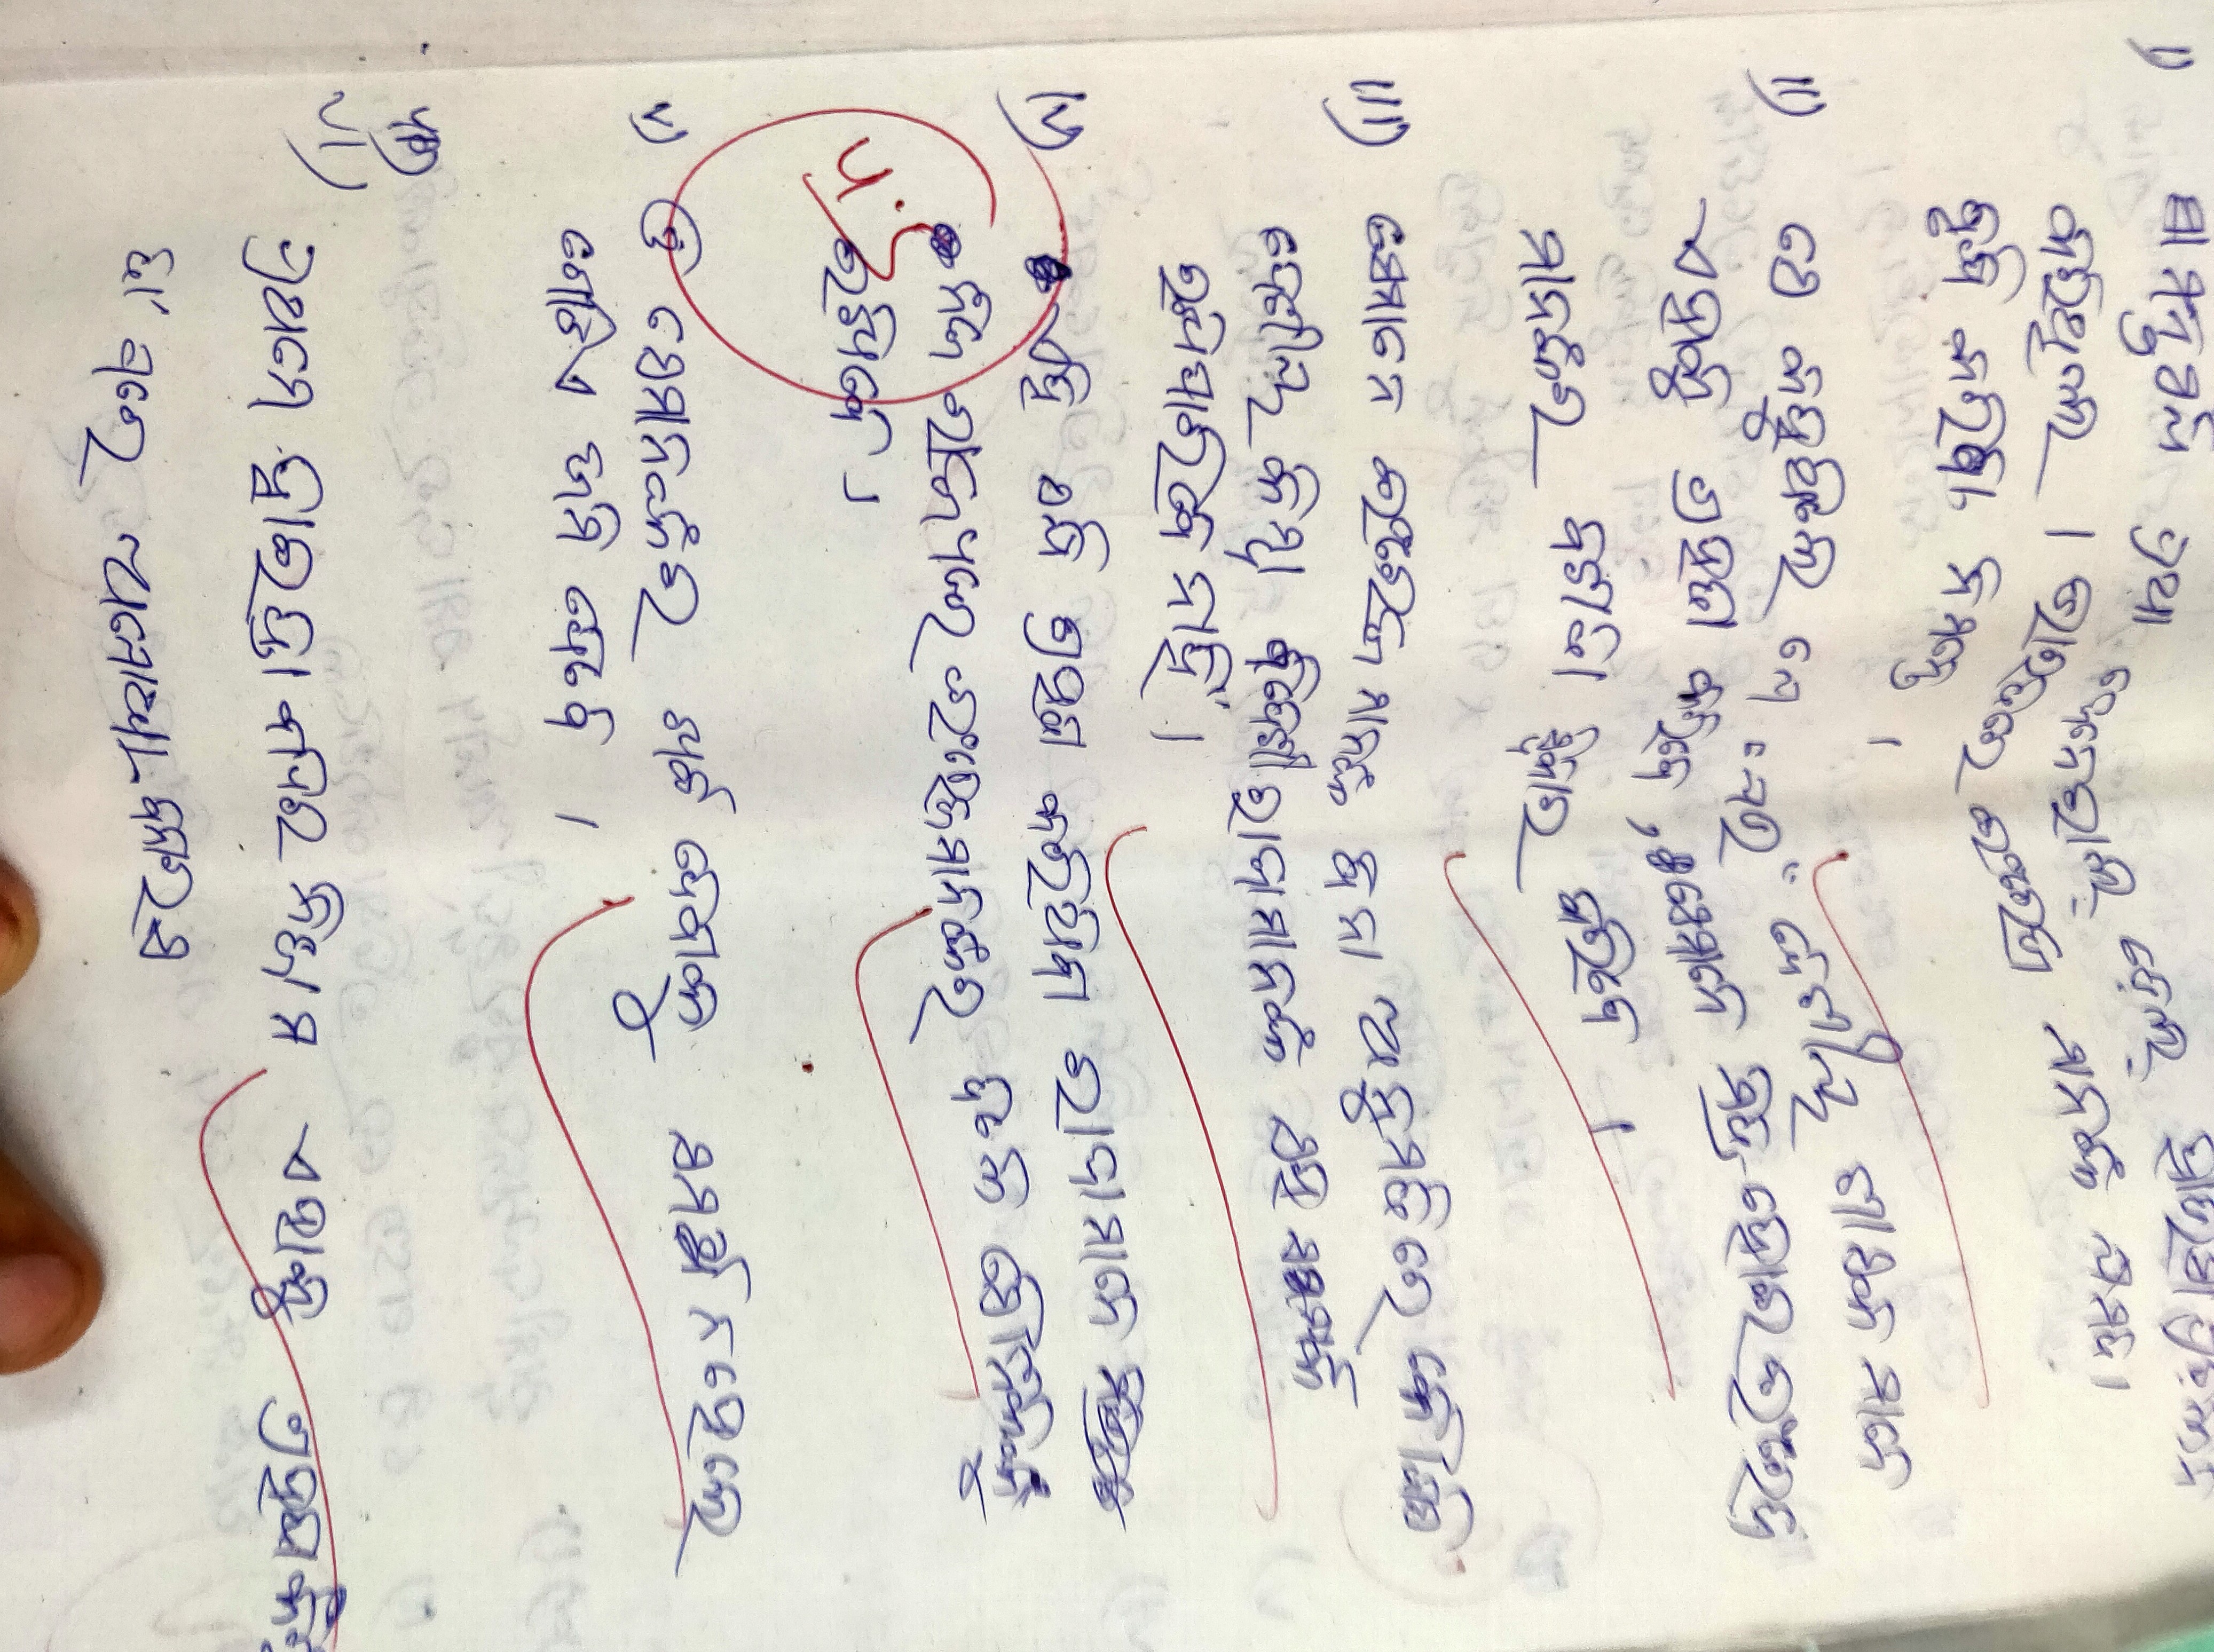 I) ସାମନ୍ତବର୍ଲ ପ୍ରଥା ଜେନେରାଲ୍ ୱେଲେ ଦ୍ୱାରା ପ୍ରଚଳନ
କରିଥିଲେ । ଭାରତରେ ଇଂରେଜ ମାନଙ୍କ କ୍ଷମତା
ବୃଦ୍ଧି କରିବା ନିମନ୍ତେ ।
II) ସେ କହୁଥିଲେ ଯେ ଯେଉଁ ଦେଶୀୟ ଶାସକ ମାନେ
ଏହାକୁ ଗ୍ରହଣ କରିବେ , ସେମାନେ ମିତ୍ର ହୋଇ ଇଂରେଜ
ମାନଙ୍କର ବଶତା ସ୍ୱିକାର କରିବେ ।
III) ସେମାନେ ଇଂରେଜ ମାନଙ୍କ ବିନା ଅନୁମତିରେ କୌଣସି
ଦେଶୀୟ କିମ୍ବା ବିଦେଶୀ ରାଜାମାନଙ୍କ ସହ ସମ୍ପର୍କ
ରଖିପାରିବେ ନାହିଁ ।
IV) ଏହି ସନ୍ଧି ଗ୍ରହଣ କରିଥିବା ରାଜାମାନେ
ନିଜ ରାଜ୍ୟରେ ଇଂରେଜମାନଙ୍କର ଦଳେ ସୈନିକଙ୍କୁ
ରଖିବେ ।
V) ଓ ସେମାନଙ୍କର ଖର୍ଚ୍ଚ ଦେବାକୁ ସମର୍ଥ ନହେଲେ
ଗୋଟିଏ ଜମି ଦେବେ ।
VI)
ପ୍ରଥମେ ହାଇଦ୍ରାବାଦର ନିଜାମ ଏହାକୁ ଗ୍ରହଣ
ତା' ପରେ ଅଯୋଧ୍ୟା ବନାରସ